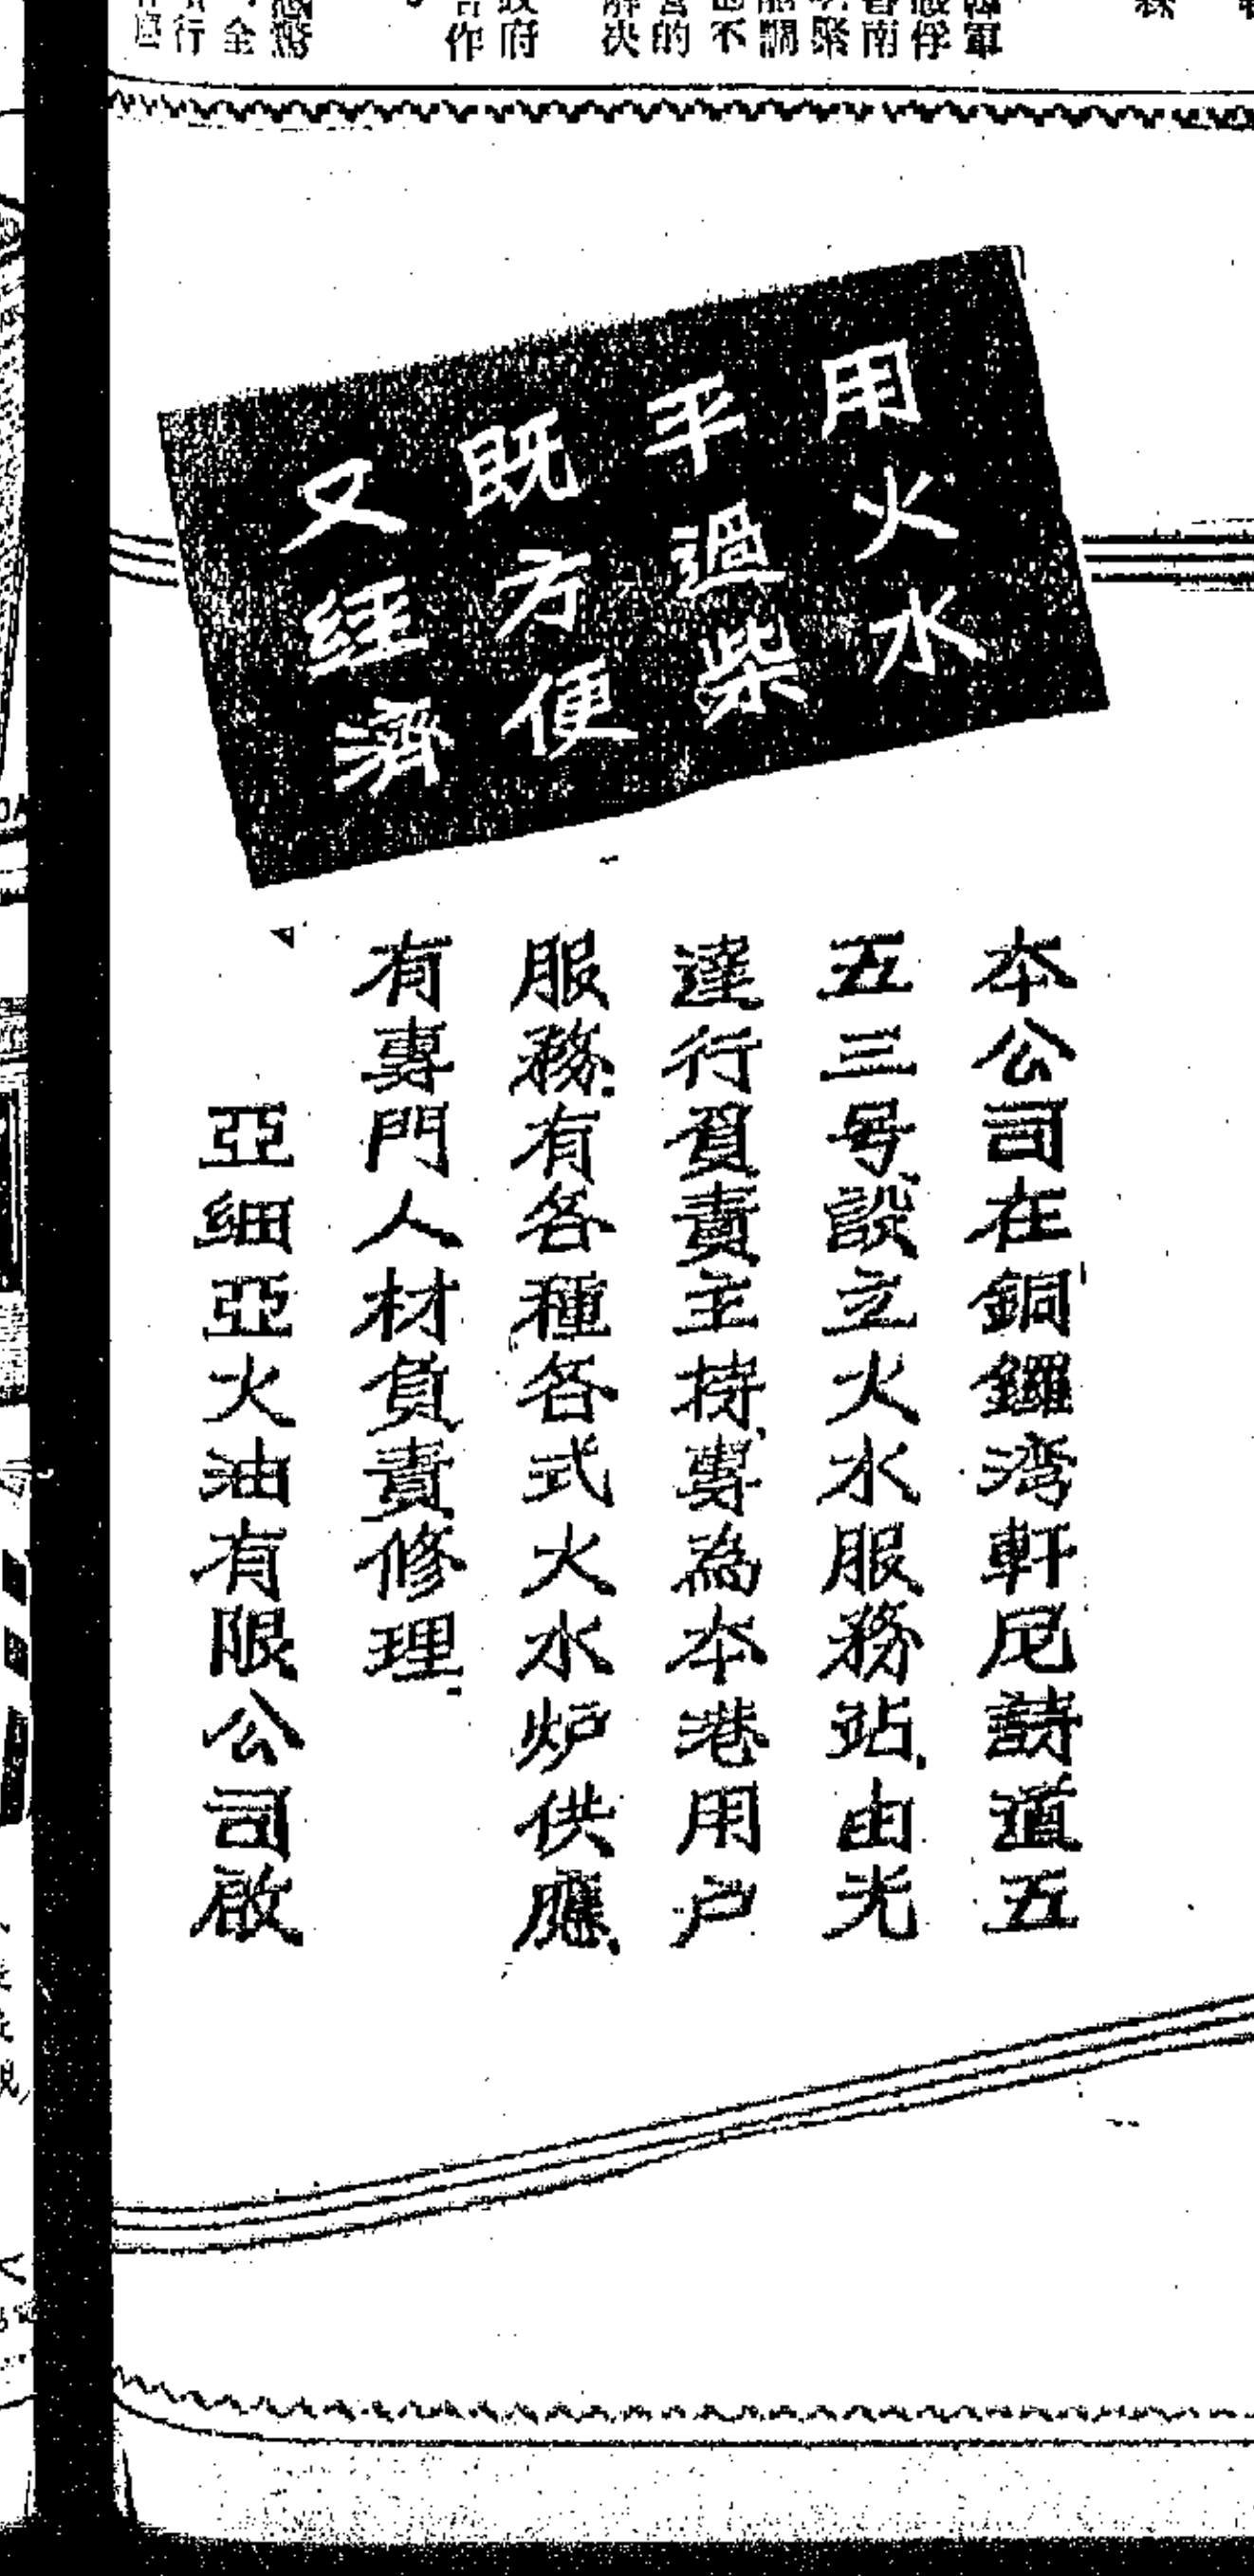 用火水
平過柴
既方便
又經濟
本公司在銅鑼湾軒尼詩道五
五三号、設立火水服務站.由光
達行負責主持、專為本港用户
服務.有各種各式火水炉供應.
有專門人材負責修理.
亞細亞火油有限公司啟
政府
合作
的
解决